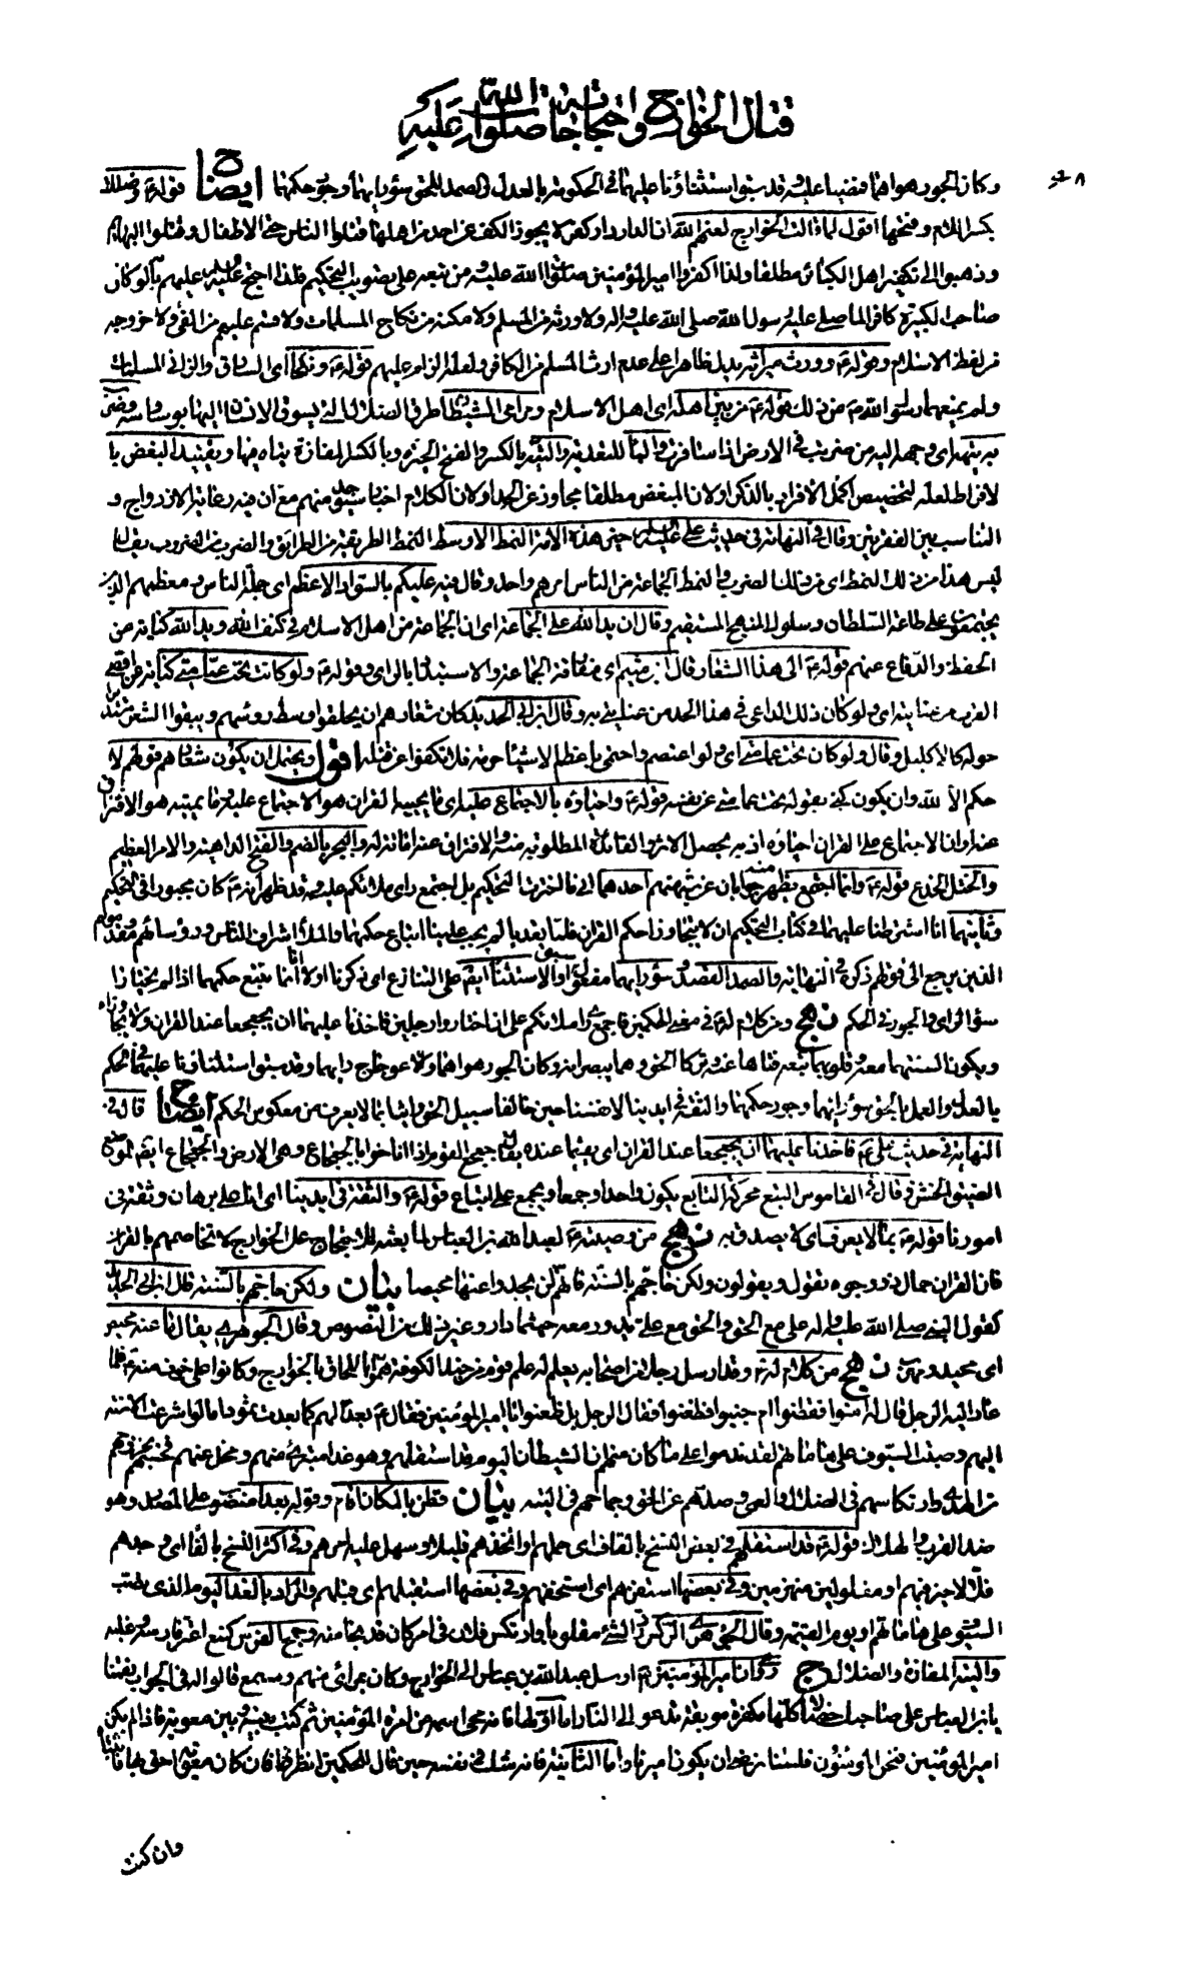 قتال الخوارج واحتجاجاته صلوات الله عليه
وكان الجور هواهما فمضيا عليه وقد سبق استثناؤنا عليهما في الحكومة بالعدل والصمد للحق سوء رأيهما وجور حكمهما ايضاح قوله وضللت
بكسر اللام وفتحها اقول لما قالت الخوارج لعنهم الله ان الدار دار كفر لا يجوز الكف عن احد من اهلها قتلوا الناس حتى الاطفال وقتلوا البهائم
وذهبوا الى تكفير اهل الكبائر مطلقا ولذا اكفروا امير المؤمنين صلوات الله عليه ومن تبعه على تصويب التحكيم فلذا احتج عليهم بانه لو كان
صاحب الكبيرة كافرا لما صلى عليه رسول الله صلى الله عليه واله ولا ورثه من المسلم ولا مكنه من نكاح المسلمات ولا قسم عليهم من الفيء ولا خرجه
من لفظ الاسلام وقوله ع وورث ميراثه يدل ظاهرا على عدم ارث المسلم من الكافر ولعله الزام عليهم قوله ع ونكحا اي السارق والزاني المسلمات
ولم يمنعهما رسول الله ص من ذلك قوله ع من بين اهله اي اهل الاسلام ومرامي الشيطان طرق الضلال التي يسوق الانسان اليها بوساوسه وضرب
به تيهه اي وجهه اليه من ضربت في الارض اذا سافرت والباء للتعدية والتيه بالكسر والفتح الحيرة وبالكسر المفازة يتاه فيها وتقييد البغض با
لافراط لعله لتخصيص اكمل الافراد بالذكر او لان المبغض مطلقا مجاوز عن الحد او لان الكلام اخبار عما سيوجد منهم مع ان فيه رعاية الازدواج و
التناسب بين الفقرتين وقال في النهاية في حديث علي عليه السلام خير هذه الامة النمط الاوسط النمط الطريقة من الطرائق والضرب من الضروب يقال
ليس هذا من ذلك النمط اي من ذلك الضرب والنمط الجماعة من الناس امرهم واحد وقال فيه عليكم بالسواد الاعظم اي جملة الناس ومعظمهم الذين
يجتمعون على طاعة السلطان وسلوك المنهج المستقيم وقال ان يد الله على الجماعة اي ان الجماعة من اهل الاسلام في كنف الله ويد الله كناية عن
الحفظ والدفاع عنهم قوله ع الى هذا الشعار قال ابن ميثم اي مفارقة الجماعة والاستبداد بالراي وقوله ع ولو كان تحت عمامتي كناية عن اقصى
القرب من عنايته اي ولو كان ذلك الداعي في هذا الحد من عنايتي به وقال ابن ابي الحديد كان شعارهم ان يحلقوا وسط رؤسهم ويبقوا الشعر مستديرا
حوله كالاكليل وقال ولو كان تحت عمامتي اي ولو اعتصم واحتمى باعظم الاشياء حرمة فلا تكفوا عن قتله اقول ويحتمل ان يكون شعارهم قولهم لا
حكم الا لله وان يكون كنى بقوله تحت عمامتي عن نفسه قوله ع واحياؤه بالاجتماع عليه اي ما يحييه القرآن هو الاجتماع عليه وما يميته هو الافتراق
عنه او ان الاجتماع على القران احياؤه اذ به يحصل الاثر والفائدة المطلوبة منه والافتراق عنه اماتة له والبجر بالضم والفتح الداهية والامر العظيم
والختل الخدع قوله ع وانما اجتمع يظهر منه جوابان عن شبهتهم احدهما اني ما اخترت التحكيم بل اجتمع راي ملائكم عليه وقد ظهر انه ع كان مجبورا في التحكيم
وثانيهما انا اشترطنا عليهما في كتاب التحكيم ان لا يتجاوزا حكم القران فلما تعديا لم يجب علينا اتباع حكمهما والملأ اشراف الناس ورؤساؤهم ومقدموهم
الذين يرجع الى قولهم ذكره في النهاية والصمد القصد وسوء رايهما مفعول سبق او الاستثناء ايضا على التنازع اي ذكرنا اولا انا انما نتبع حكمهما اذا لم يختارا
سوء الراي والجور في الحكم نهج ومن كلام له ع في معنى الحكمين فاجمع راي ملائكم على ان اختاروا رجلين فاخذنا عليهما ان يجعجعا عند القران ولا يجاوزاه
ويكون السنتهما معه وقلوبهما تبعه فتاها عنه وتركا الحق وهما يبصرانه وكان الجور هواهما والاعوجاج دابهما وقد سبق استثناؤنا عليهما في الحكم
بالعدل والعمل بالحق سوء رايهما وجور حكمهما والثقة في ايدينا لانفسنا حين خالفا سبيل الحق واتيا بما لا يعرف من معكوس الحكم ايضاح قال في
النهاية في حديث علي ع فاخذنا عليهما ان يجعجعا عند القران اي يقيما عنده يقال جعجع القوم اذا اناخوا بالجعجاع وهي الارض والجعجاع ايضا الموضع
الضيق الخشن وقال في القاموس التبع محركة التابع يكون واحدا وجمعا ويجمع على اتباع قوله ع والثقة في ايدينا اي انا على برهان وثقة في
امورنا قوله ع بما لا يعرف اي لا يصدق به نهج من وصيته ع لعبد الله بن العباس لما بعثه للاحتجاج على الخوارج لا تخاصمهم بالقران
فان القران حمال ذو وجوه تقول ويقولون ولكن حاجهم بالسنة فانهم لن يجدوا عنها محيصا بيان ولكن حاجهم بالسنة قال ابن ابي الحديد
كقول النبي صلى الله عليه واله علي مع الحق والحق مع علي يدور معه حيثما دار وغير ذلك من النصوص وقال الجوهري يقال ما عنه محيص
اي محيد ومهرب نهج من كلام له ع وقد ارسل رجلا من اصحابه يعلم له علم قوم من جند الكوفة هموا باللحاق بالخوارج وكانوا على خوف منه ع فلما
عاد اليه الرجل قال له امنوا فقطنوا ام جبنوا فظعنوا فقال الرجل بل ظعنوا يا امير المؤمنين فقال ع بعدا لهم كما بعدت ثمود اما لو اشرعت الاسنة
اليهم وصبت السيوف على هاماتهم لقد ندموا على ما كان منهم ان الشيطان اليوم قد استفلهم وهو غدا متبرئ منهم ومخل عنهم فحسبهم بخروجهم
من الهدى وارتكاسهم في الضلال والعمى وصدهم عن الحق وجماحهم في التيه بيان قطن بالمكان اقام وقوله بعدا منصوب على المصدر وهو
ضد القرب والهلاك قوله ع قد استفلهم في بعض النسخ بالقاف اي حملهم واتخذهم قليلا وسهل عليه امرهم وفي اكثر النسخ بالفاء اي وجدهم
فلا لا خير فيهم او مفلولين منهزمين وفي بعضها استفزهم اي استخفهم وفي بعضها استقبلهم اي قبلهم والمراد بالغد اليوم الذي تصب
السيوف على هاماتهم او يوم القيمة وقال الجوهري الركس رد الشيء مقلوبا وارتكس فلان في امر كان قد نجا منه وجمح الفرس كمنع اعتز فارسه وغلبه
والتيه المفازة والضلال ج روي ان امير المؤمنين ع ارسل عبد الله بن عباس الى الخوارج وكان بمرائ منهم ومسمع قالوا له في الجواب نقمنا
يا ابن العباس على صاحبك خصالا كلها مكفرة موبقة تدعو الى النار اما اولها فانه محى اسمه من امرة المؤمنين ثم كتب بينه وبين معوية فاذا لم يكن
امير المؤمنين فنحن المؤمنون فلسنا نرضى ان يكون اميرنا واما الثانية فانه شك في نفسه حين قال للحكمين انظرا فان كان معوية احق بها فاثبتاه
وان كنت